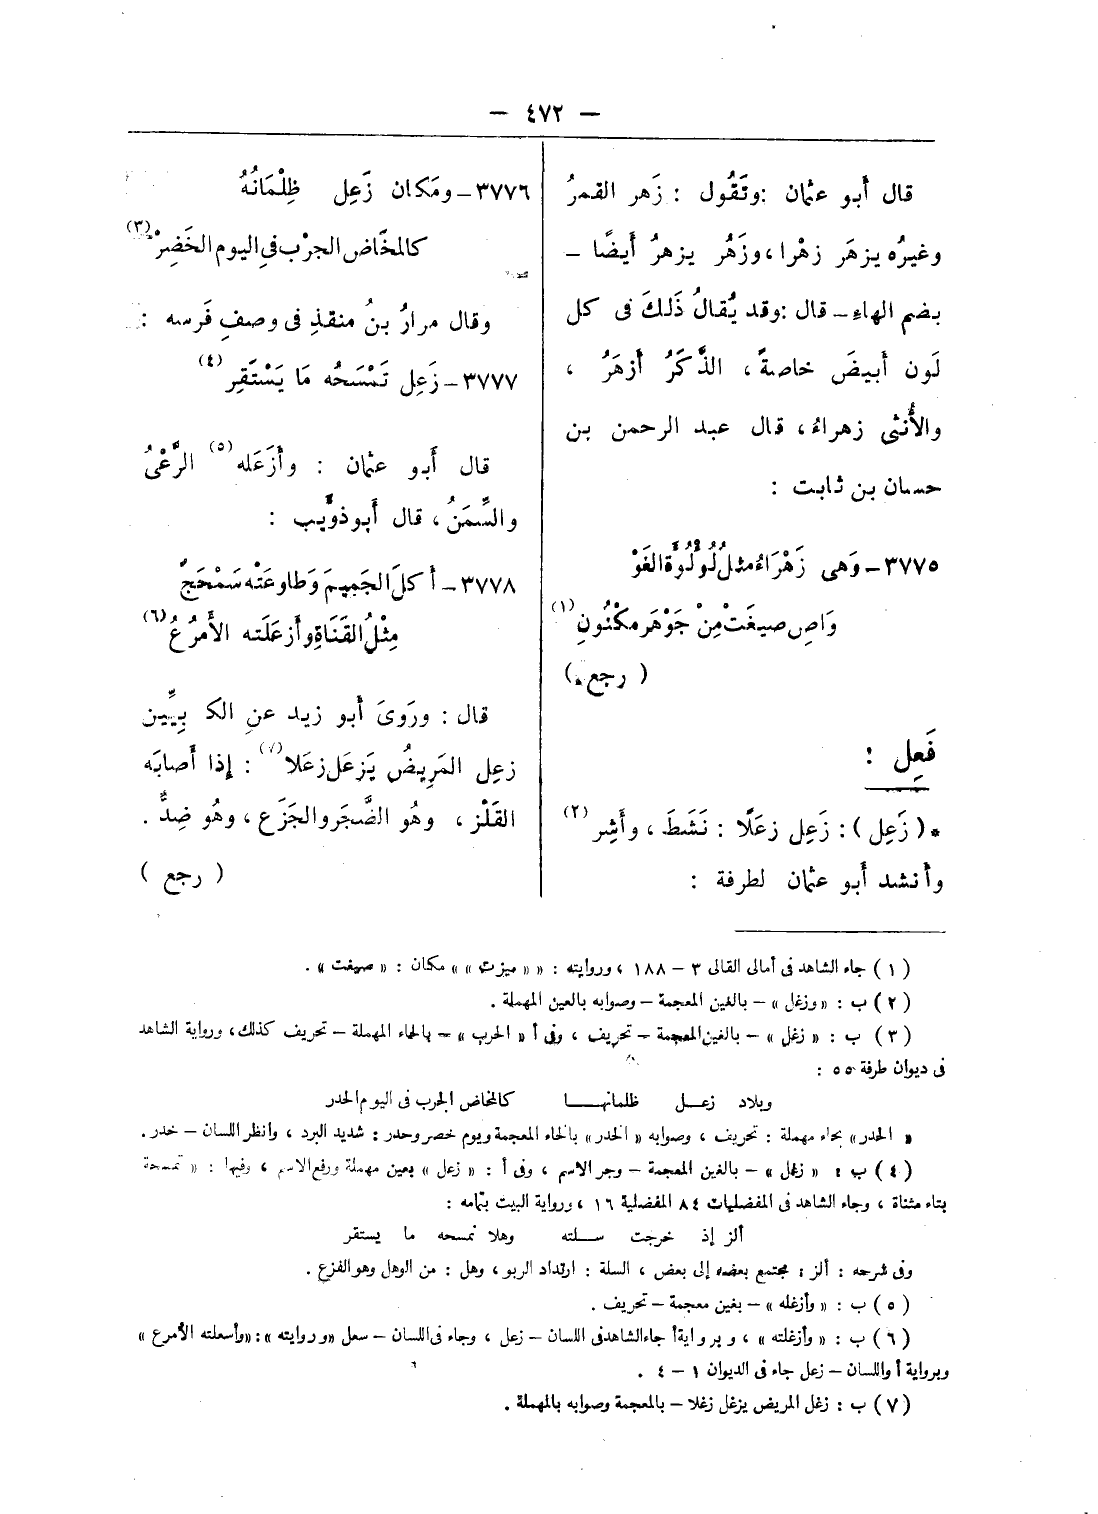 — ٤٧٢ —
قال أَبو عثمان : وتَقُول : زَهر القمرُ
وغيرُه يزهَر زهْرا ، وزَهُر يزهرُ أَيضًا –
بضم الهاءِ – قال : وقد يُقالُ ذَلكَ فى كل
لَون أَبيضَ خاصةً ، الذَّكَرُ أَزهَرُ ،
والأُنثى زهراءُ ، قال عبد الرحمن بن
حسان بن ثابت :
٣٧٧٥ – وَهى زَهْرَاءُ مثلُ لُؤلُؤَة الغَوْ
وَاصِ صيغَتْ مِنْ جَوْهَر مكْنُونِ (١)
( رجع )
فَعِل :
* ( زَعِل ) : زَعِل زعَلًا : نَشَطَ ، وأَشِر (٢)
وأنشد أَبو عثمان لطرفة :
٣٧٧٦ – ومَكان زَعِل ظِلْمَانُهُ
كالمخَاض الجرْب فى اليوم الخَضِرْ (٣)
وقال مرارُ بنُ منقذِ فى وصفِ فَرسه :
٣٧٧٧ – زَعِل تَمْسَحُه مَا يَسْتَقِر (٤)
قال أَبو عثمان : وأَزَعَله (٥) الرَّعْىُ
والسِّمَنُ ، قال أَبو ذؤَيب :
٣٧٧٨ – أكلَ الجَمِيمَ وَطاوعَتْه سَمْحَجٌ
مِثْلُ القَنَاةِ وأَزعَلَته الأَمرُعُ (٦)
قال : ورَوىَ أَبو زيد عنِ الكلابِيِّين
زعِل المَرِيضُ يَزعَل زعَلا (٧) : إذا أَصابَه
القَلَز ، وهُو الضَّجَر والجَزَع ، وهُو ضِدٌّ .
( رجع )
(١) جاء الشاهد فى أمالى القالى ٣ – ١٨٨ ، وروايته : « « ميزت » » مكان : « صيغت » .
(٢) ب : « وزغل » – بالغين المعجمة – وصوابه بالعين المهملة .
(٣) ب : « زغل » – بالغين المعجمة – تحريف ، وفى أ « الحرب » – بالحاء المهملة – تحريف كذلك ، ورواية الشاهد
فى ديوان طرفة ٥٥ :
وبلاد زعل ظلمانها كالمخاض الجرب فى اليوم الخدر
« الحدر » بحاء مهملة : تحريف ، وصوابه « الخدر » بالخاء المعجمة ويوم خصر وخدر : شديد البرد ، وانظر اللسان – خدر .
(٤) ب : « زغل » – بالغين المعجمة – وجر الاسم ، وفى أ : « زعل » بعين مهملة ورفع الاسم ، وفيها : « تمسحة
بتاء مثناة ، وجاء الشاهد فى المفضليات ٨٤ المفضلية ١٦ ، ورواية البيت بتمامه :
ألز إذ خرجت سلته وهلا تمسحه ما يستقر
وفى شرحه : ألز : مجتمع بعضه إلى بعض ، السلة : ارتداد الربو ، وهل : من الوهل وهو الفزع .
(٥) ب : « وأزغله » – بغين معجمة – تحريف .
(٦) ب : « وأزغلته » ، وبرواية أ جاء الشاهد فى اللسان – زعل ، وجاء فى اللسان – سعل « وروايته » : « وأسعلته الأمرع »
وبرواية أ واللسان – زعل جاء فى الديوان ١ – ٤ .
(٧) ب : زغل المريض يزغل زغلا – بالمعجمة وصوابه بالمهملة .